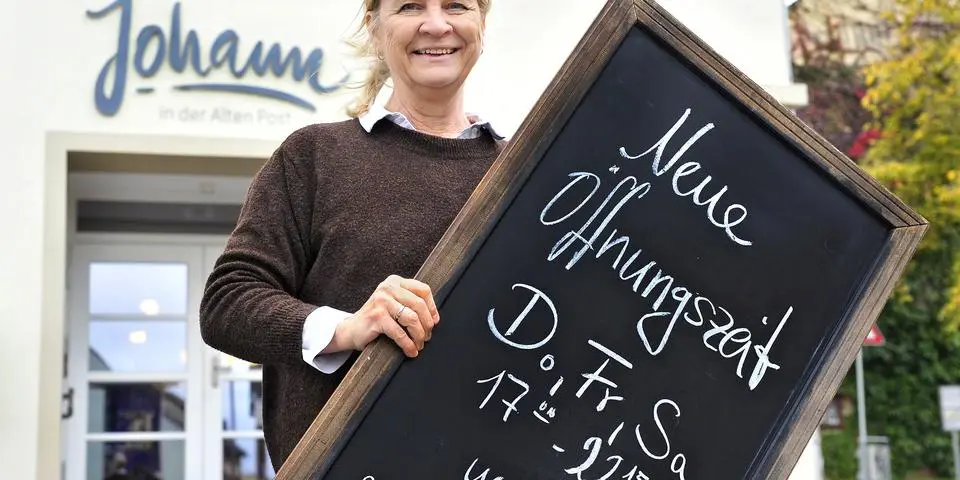 Johanne
in der Alten Post
Neue
Öffnungszeit
Do, Fr, Sa
17⁰⁰ - 22